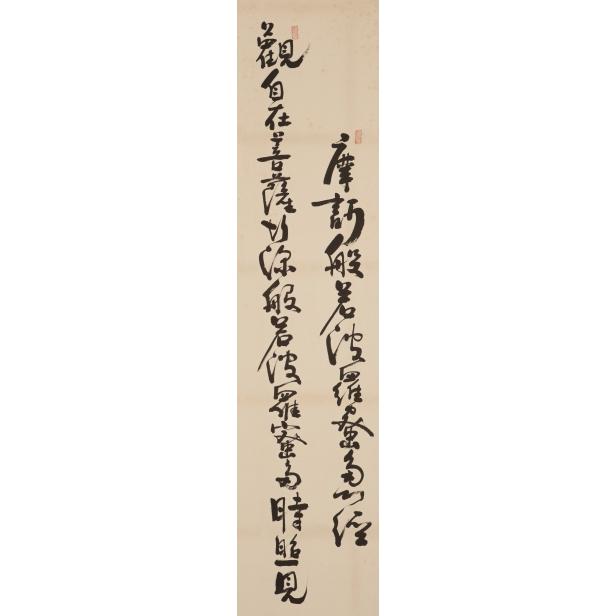 摩訶般若波羅蜜多心經
觀自在菩薩行深般若波羅蜜多時照見